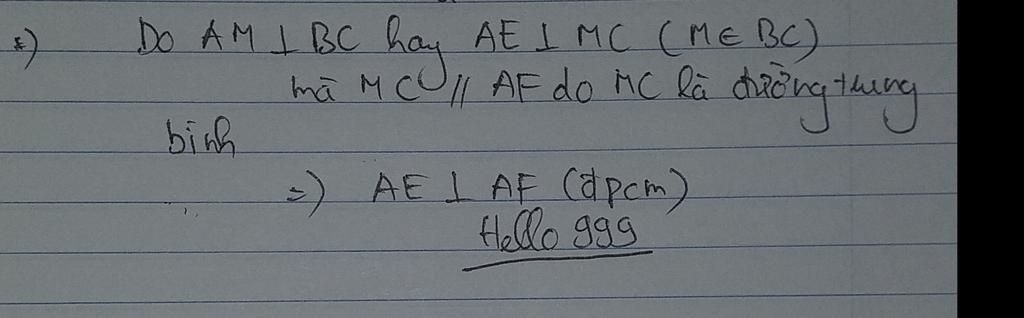 *) Do AM ⊥ BC hay AE ⊥ MC (M ∈ BC)
mà MC // AF do MC là đường trung
bình
=) AE ⊥ AF (đpcm)
Hello 999